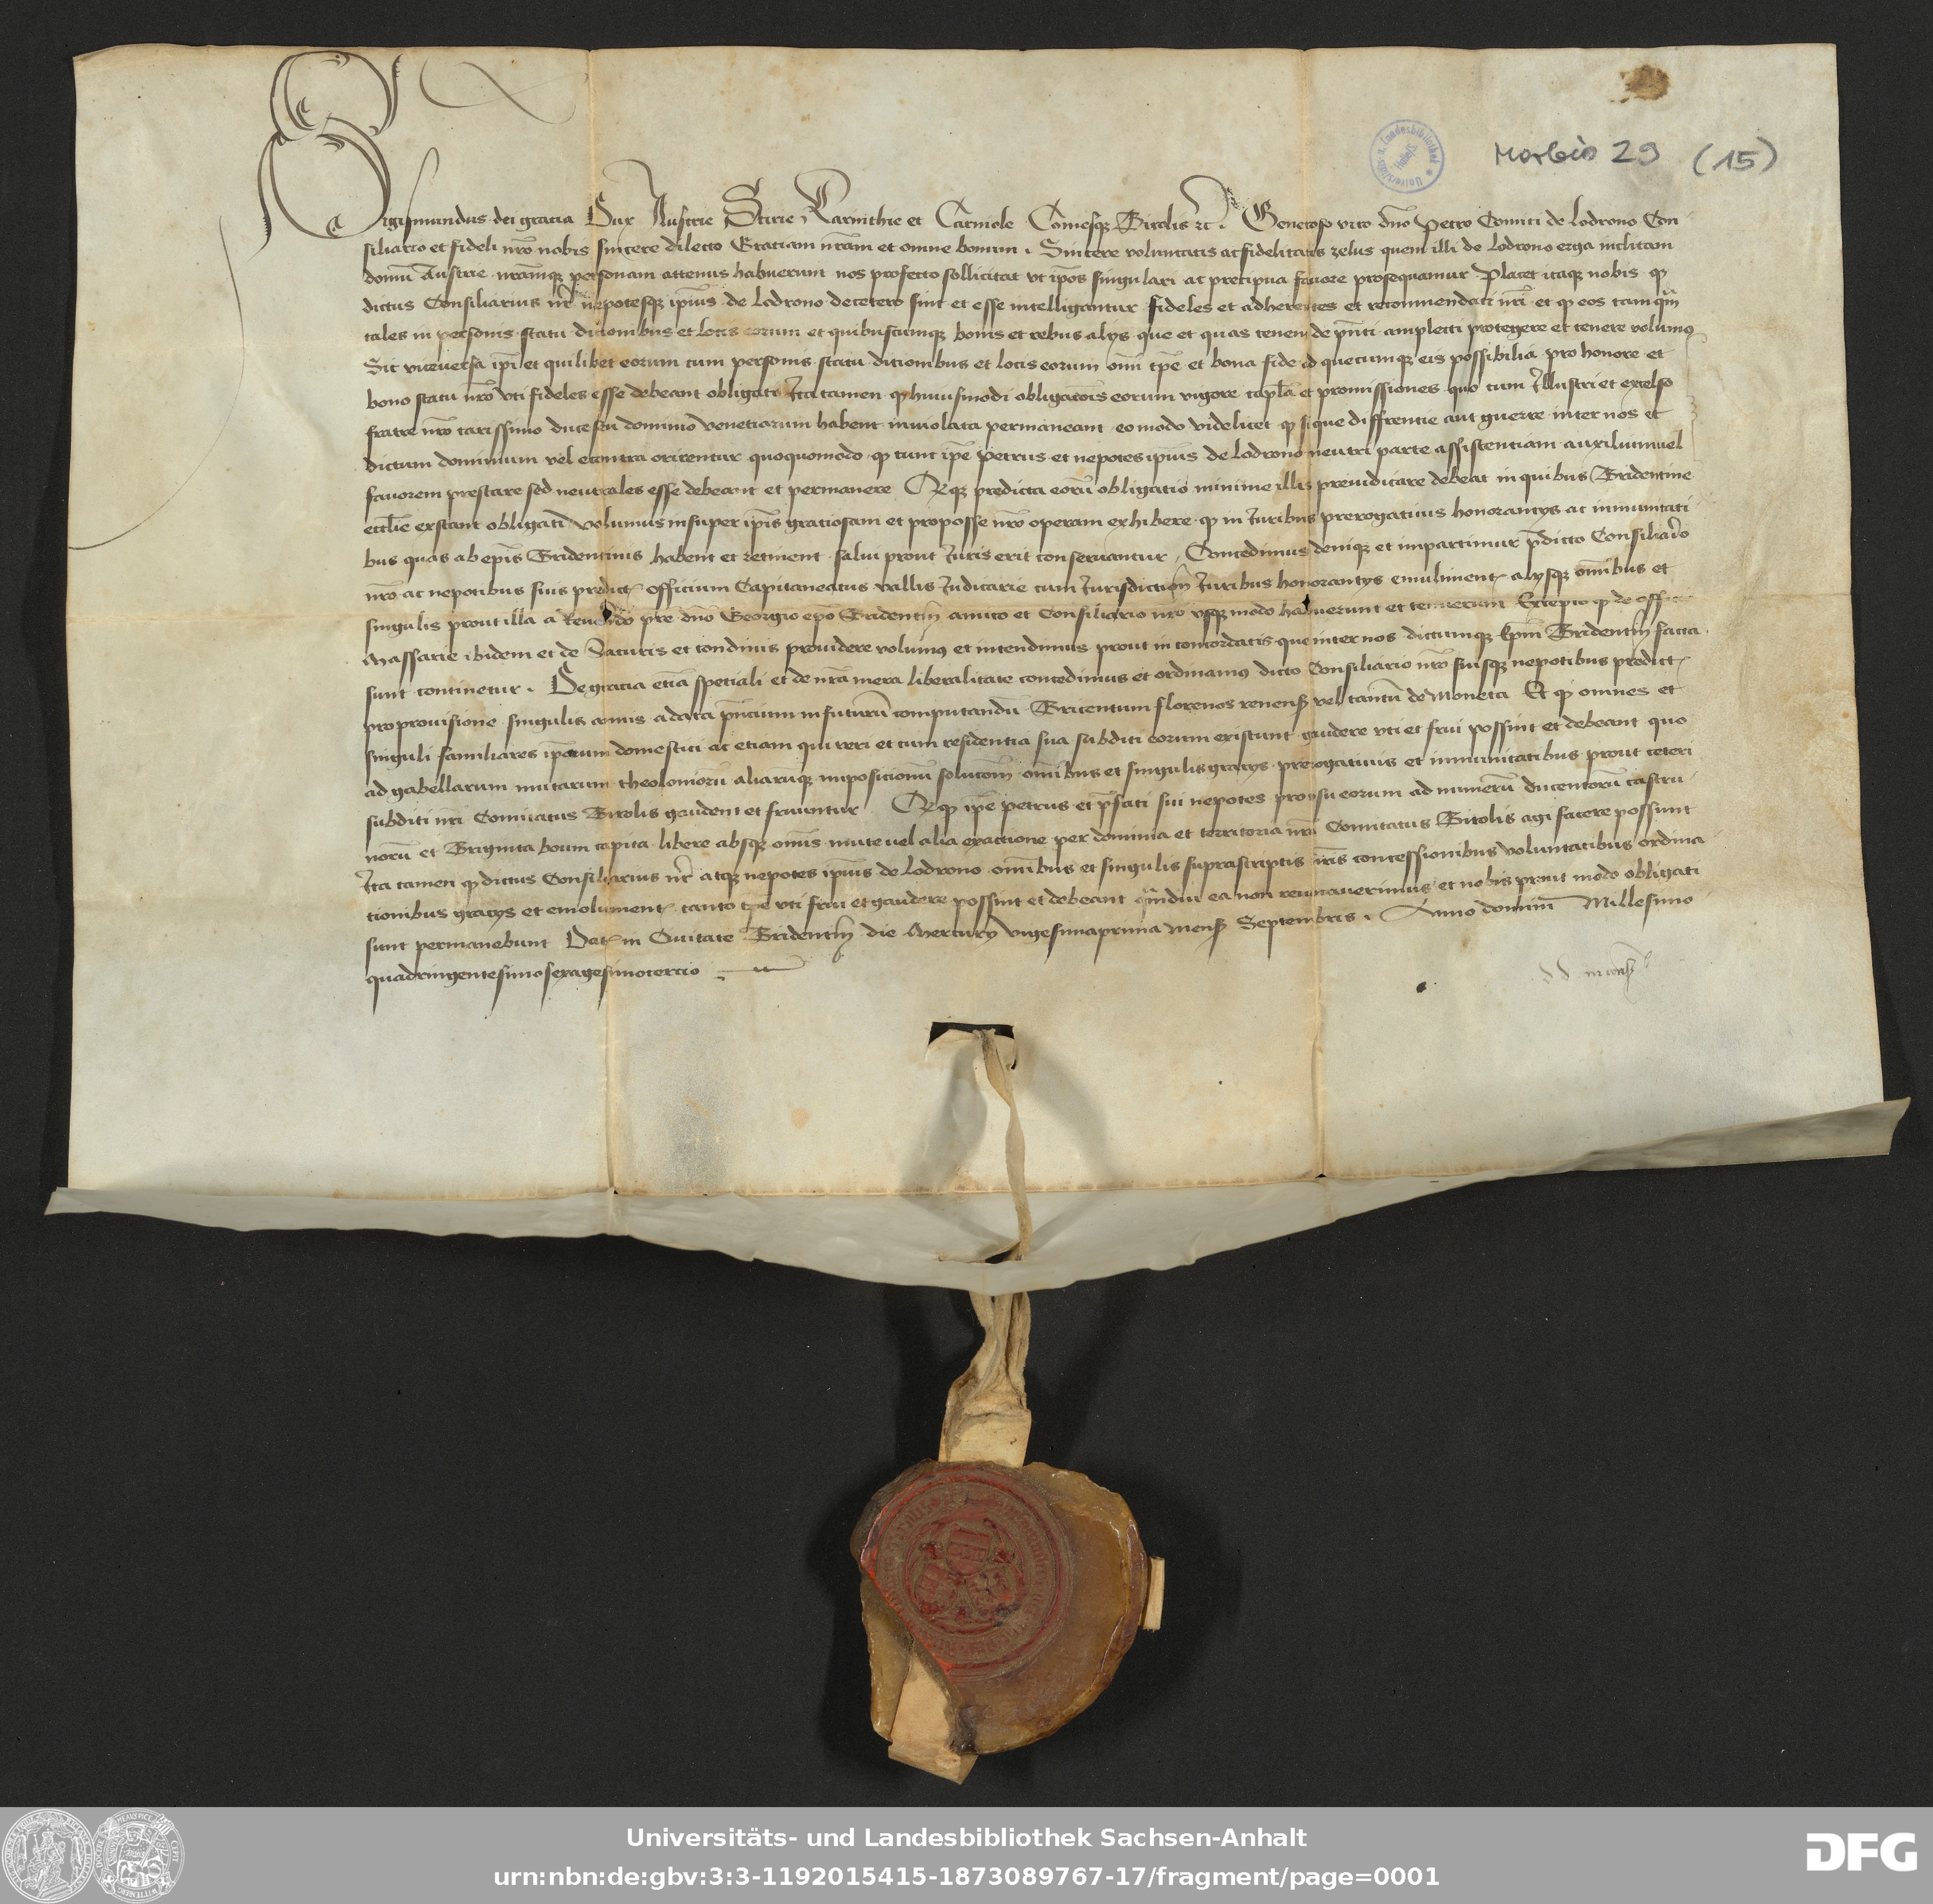 Morbio 29 (15)
Universitäts- u. Landesbibliothek Halle/S
Sigismundus dei gracia Dux Austrie Stirie Karinthie et Carniole Comesqz Tirolis zc. Generoso viro dno Petro Comiti de Lodrono Con
siliario et fideli nro nobis sincere dilecto Gratiam nram et omne bonum. Sincere voluntatis ac fidelitatis zelus quem illi de Lodrono erga inclitam
domu Austrie nramqz personam attenus habuerunt nos profecto sollicitat vt ipos singulari ac precipua fauore prosequamur Placet itaqz nobis q
dictus Consiliarius nr nepotesqz ipius de Lodrono decetero sint et esse intelligantur fideles et adherentes et recommendati nri et q eos tamqm
tales in personis statu dicionibus et locis eorum et quibuscumqz bonis et rebus alys que et quas tenent de pnti amplecti protegere et tenere volumus
Sic viceversa ipi et quilibet eorum cum personis statu dicionibus et locis eorum omi tpe et bona fide ad quecumqz eis possibilia pro honore et
bono statu nro vti fideles esse debeant obligati Ita tamen q huiusmodi obligacois eorum vigore capla et promissiones quo cum Illustri et excelso
fratre nro carissimo duce seu dominio venetiarum habent inuiolata permaneant eo modo videlicet q si que diffrentie aut guerre inter nos et
dictum dominium vel econtra orirentur quoquomodo q tunc ipe Petrus et nepotes ipius de Lodrono neutri parte assistentiam auxilium vel
fauorem prestare sed neutrales esse debeant et permanere Et qz predicta eoru obligatio minime illis preiudicare debeat in quibus Tridentine
ecclie exstant obligati Volumus insuper ipis gratiosam et proposse nro operam exhibere q in Iuribus prerogatiuis honorancys ac inmunitati
bus quas ab epis Tridentinis habent et retinent salui prout Iuris erit conseruantur Concedimus deniqz et impartimur pdicto Consiliario
nro ac nepotibus suis predict officium Capitaneatus vallis Iudicarie cum Iurisdiction Iuribus honorancys emuliment alysqz omibus et
singulis prout illa a Reuerendo pre dno Georgio epo Tridentin amico et Consiliario nro vsqz modo habuerunt et tenuerunt Excepto q de officio
Massarie ibidem et de Daturis et condinis prouidere volumus et intendimus prout in concordatis que inter nos dictumqz Epm Tridentin facta
sunt continetur. De gracia etia speciali et de nra mera liberalitate concedimus et ordinamus dicto Consiliario nro suisqz nepotibus predict
pro prouisione singulis annis a data pncium in futuru computandu Tricentum florenos renens vel tantu de moneta Et q omnes et
singuli familiares iporum domestici ac etiam qui veri et cum residentia sua subditi eorum existunt gaudere vti et frui possint et debeant quo
ad gabellarum mutarum theolonioru aliaruqz imposicionu solucom omibus et singulis gracys prerogatiuis et inmunitatibus prout ceteri
subditi nri Comitatus Tirolis gaudent et fruuntur Et q ipe Petrus et pfati sui nepotes pro vsu eorum ad numeru ducentoru castru
noru et Triginta boum capita libere absqz omi mute vel alia exactione per dominia et territoria nra Comitatus Tirolis agi facere possunt
Ita tamen q dictus Consiliarius nr atqz nepotes ipius de Lodrono omibus et singulis suprascriptis nris concessionibus voluntatibus ordina
tionibus gracys et emolument tanto tpe vti frui et gaudere possint et debeant qmdiu ea non reuocauerimus et nobis prout modo obligati
sunt permanebunt Dat in Ciuitate Tridentin die Mercury vigesimaprima mens Septembris. Anno domini Millesimo
quadringentesimosexagesimotercio
Universitäts- und Landesbibliothek Sachsen-Anhalt
urn:nbn:de:gbv:3:3-1192015415-1873089767-17/fragment/page=0001
DFG